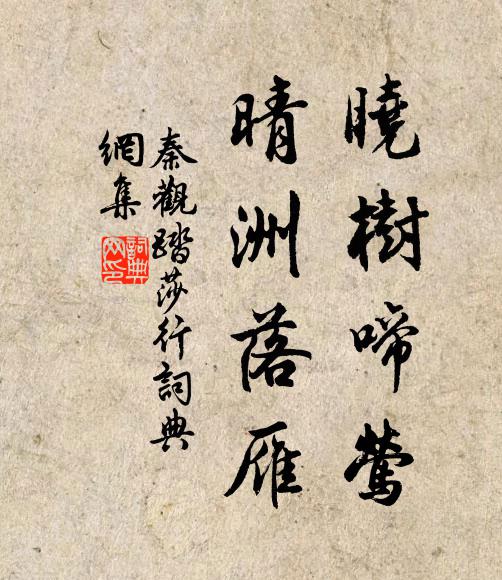 曉樹啼鶯
晴洲落雁
秦觀踏莎行詞典
網集
詞典
網印